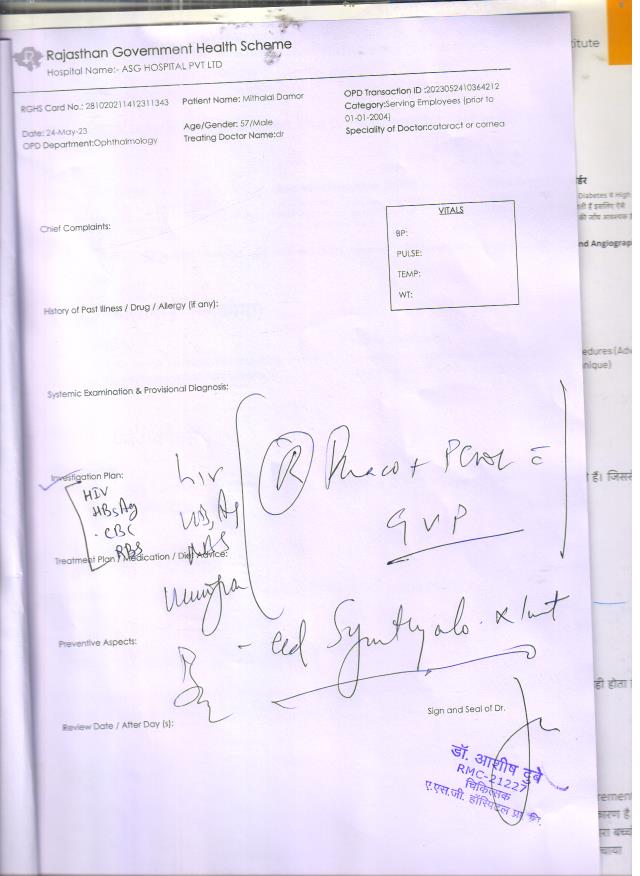 Rajasthan Government Health Scheme
Hospital Name:- ASG HOSPITAL PVT LTD
RGHS Card No.: 281020211412311343
Patient Name: Mithalal Damor
OPD Transaction ID :2023052410364212
Category:Serving Employees (prior to
01-01-2004)
Date: 24-May-23
Age/Gender: 57/Male
Speciality of Doctor:cataract or cornea
OPD Department:Ophthalmology
Treating Doctor Name:dr
Chief Complaints:
VITALS
BP:
PULSE:
TEMP:
WT:
History of Past Illness / Drug / Allergy (if any):
Systemic Examination & Provisional Diagnosis:
Investigation Plan:
HIV
HBsAg
CBC
RBS
hiv
R Phaco + PCIOL
GVP
Treatment Plan / Medication / Diet Advice:
Preventive Aspects:
Review Date / After Day (s):
Sign and Seal of Dr.
डॉ. आशीष दुबे
RMC-21227
चिकित्सक
ए.एस.जी. हॉस्पिटल प्रा.
titute
र्डर
Diabetes व High
nd Angiograp
edures (Adv
nique)
हैं। जिससे
ही होता
कारण है